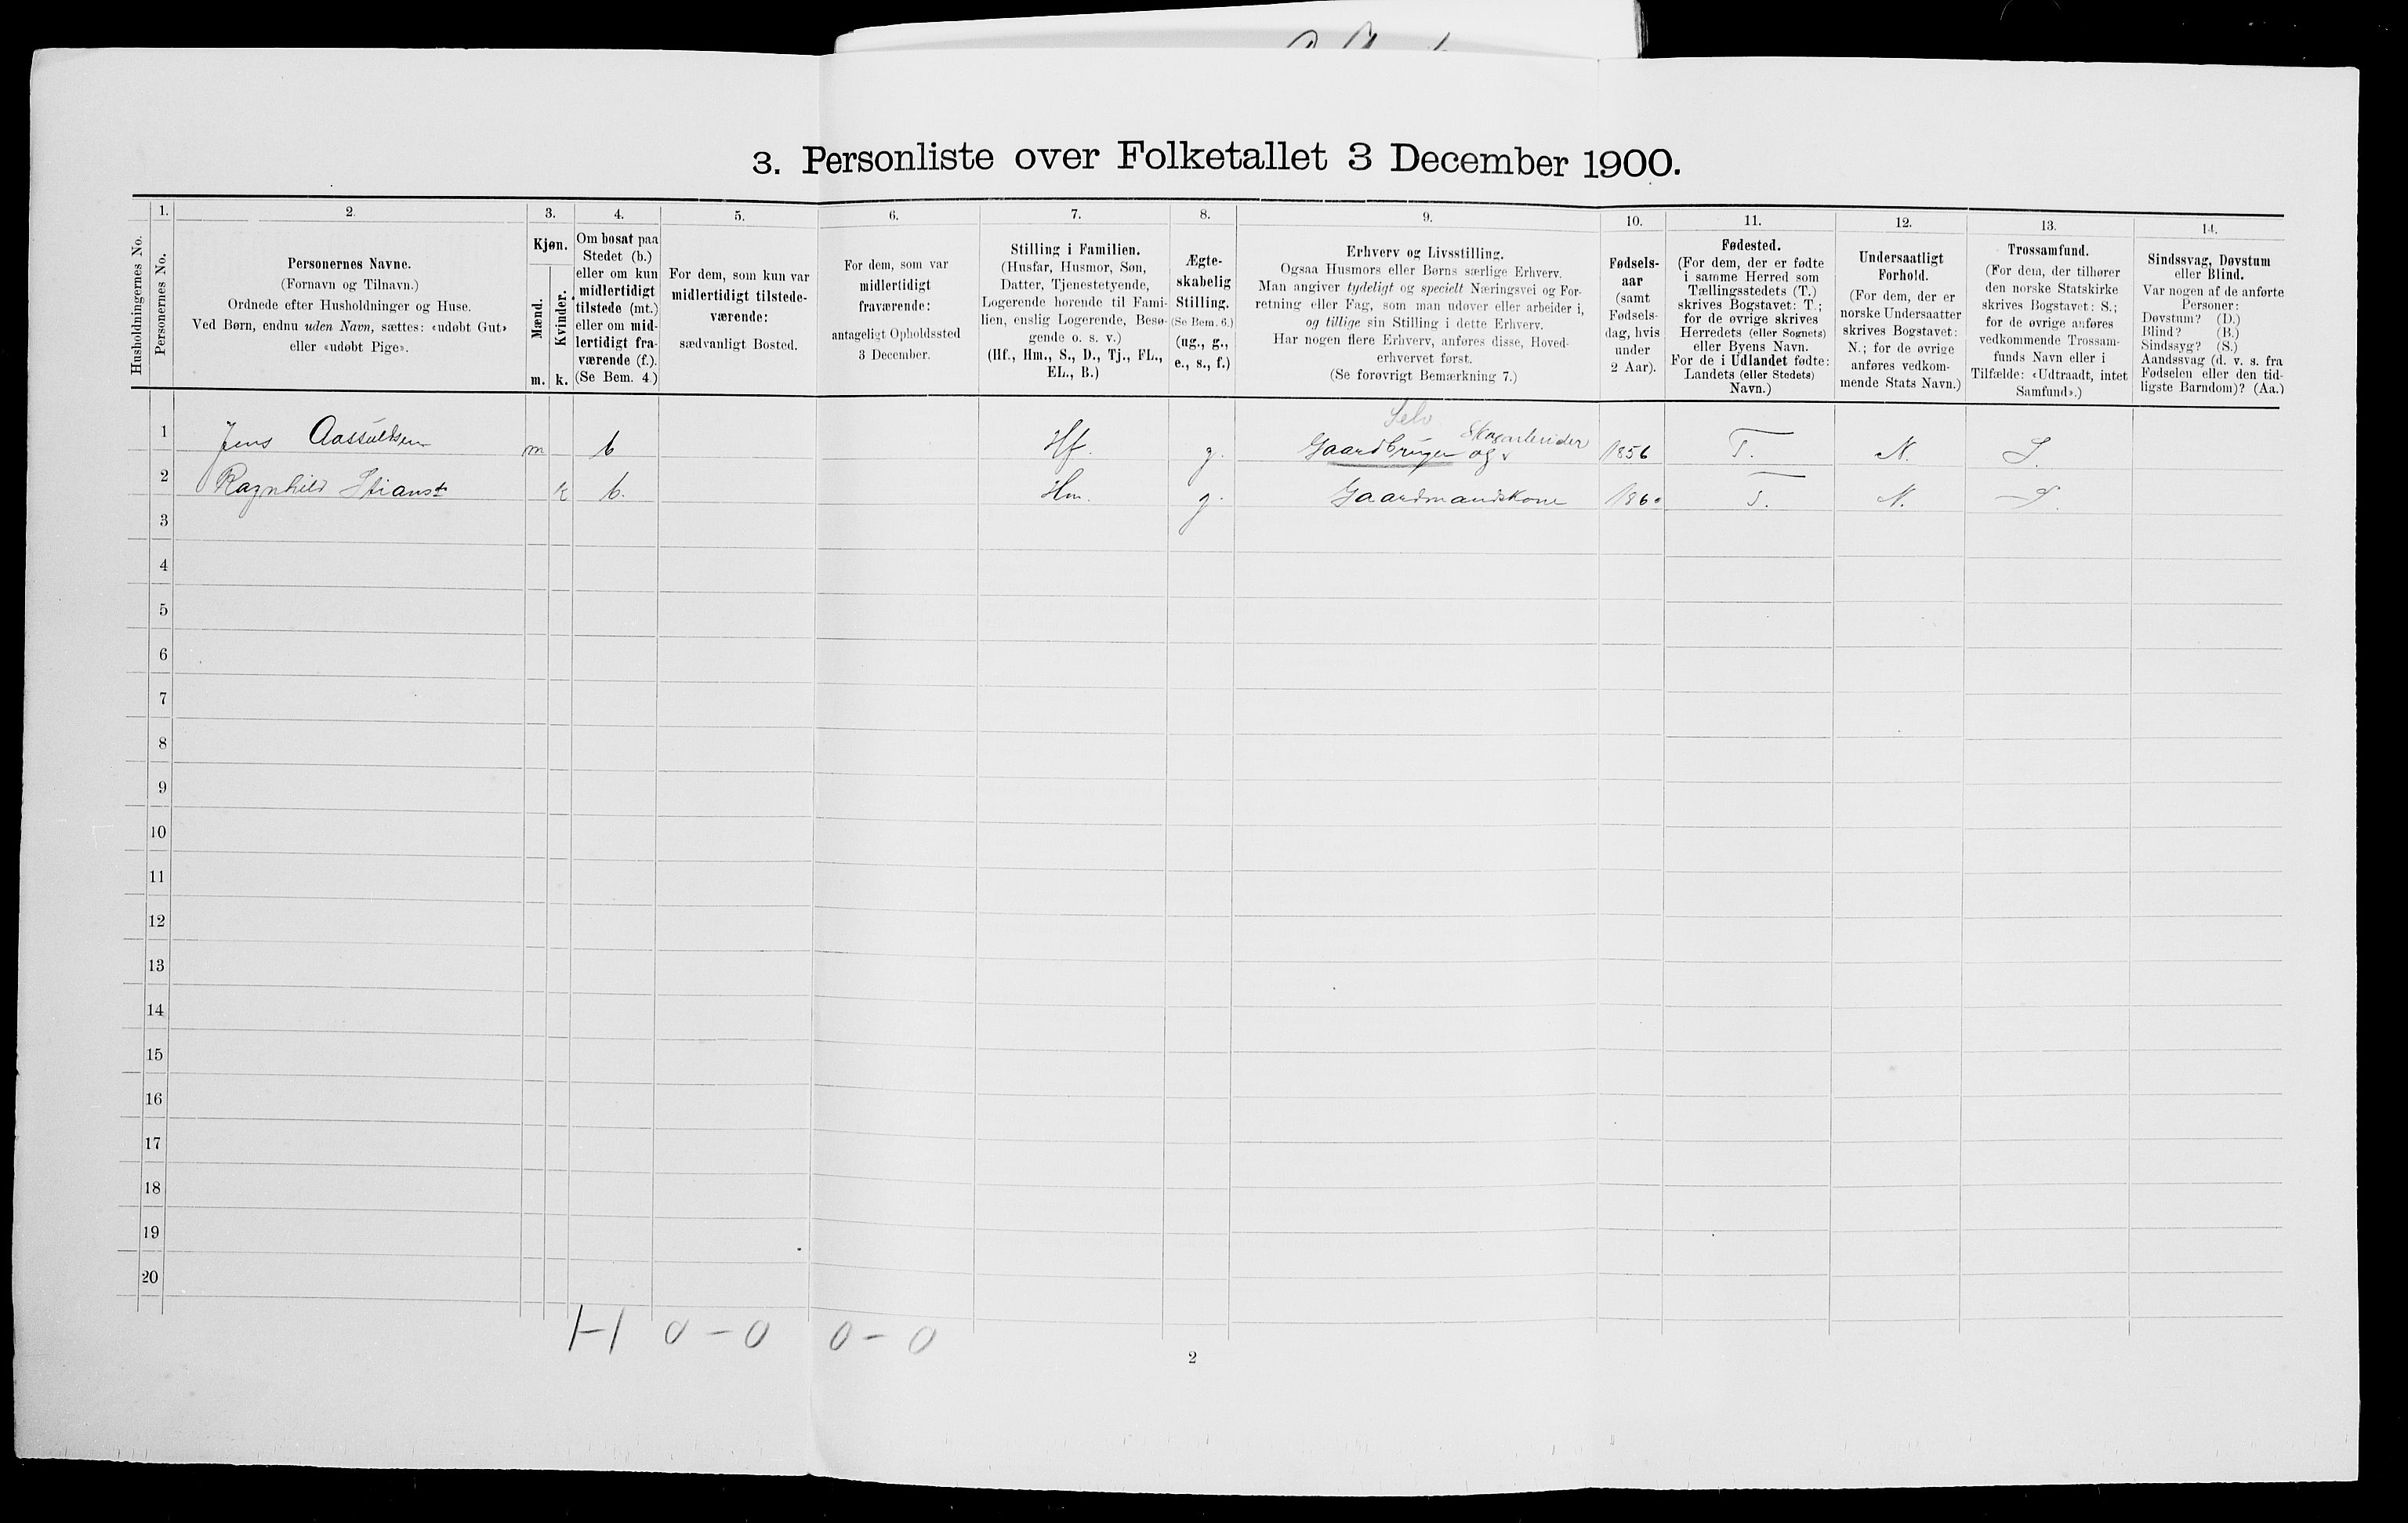 3. Personliste over Folketallet 3 December 1900.
Husholdningernes No.
1.
Personernes No.
2.
Personernes Navne.
(Fornavn og Tilnavn.)
Ordnede efter Husholdninger og Huse.
Ved Børn, endnu uden Navn, sættes: «udøbt Gut»
eller «udøbt Pige».
3.
Kjøn.
Mænd.
Kvinder.
m.
k.
4.
Om bosat paa
Stedet (b.)
eller om kun
midlertidigt
tilstede (mt.)
eller om mid-
lertidigt fra-
værende (f.).
(Se Bem. 4.)
5.
For dem, som kun var
midlertidigt tilstede-
værende:
sædvanligt Bosted.
6.
For dem, som var
midlertidigt
fraværende:
antageligt Opholdssted
3 December.
7.
Stilling i Familien.
(Husfar, Husmor, Søn,
Datter, Tjenestetyende,
Logerende hørende til Fami-
lien, enslig Logerende, Besø-
gende o. s. v.)
(Hf., Hm., S., D., Tj., FL.,
EL., B.)
8.
Ægte-
skabelig
Stilling.
(Se Bem. 6.)
(ug., g.,
e., s., f.)
9.
Erhverv og Livsstilling.
Ogsaa Husmors eller Børns særlige Erhverv.
Man angiver tydeligt og specielt Næringsvei og For-
retning eller Fag, som man udøver eller arbeider i,
og tillige sin Stilling i dette Erhverv.
Har nogen flere Erhverv, anføres disse, Hoved-
erhvervet først.
(Se forøvrigt Bemærkning 7.)
10.
Fødsels-
aar
(samt
Fødsels-
dag, hvis
under
2 Aar).
11.
Fødested.
(For dem, der er fødte
i samme Herred som
Tællingsstedets (T.)
skrives Bogstavet: T.;
for de øvrige skrives
Herredets (eller Sognets)
eller Byens Navn.
For de i Udlandet fødte:
Landets (eller Stedets)
Navn.)
12.
Undersaatligt
Forhold.
(For dem, der er
norske Undersaatter
skrives Bogstavet:
N.; for de øvrige
anføres vedkom-
mende Stats Navn.)
13.
Trossamfund.
(For dem, der tilhører
den norske Statskirke
skrives Bogstavet: S.;
for de øvrige anføres
vedkommende Trossam-
funds Navn eller i
Tilfælde: «Udtraadt, intet
Samfund».)
14.
Sindssvag, Døvstum
eller Blind.
Var nogen af de anførte
Personer:
Døvstum? (D.)
Blind? (B.)
Sindssyg? (S.)
Aandssvag (d. v. s. fra
Fødselen eller den tid-
ligste Barndom)? (Aa.)
Selv
1 Jens Aassuldsen m b Hf. g. Gaardbruger og Skogarbeider 1856 T. N. S.
2 Ragnhild k b. Hm. g. Gaardmandskone 1860 T. N. S.
3
4
5
6
7
8
9
10
11
12
13
14
15
16
17
18
19
20
1-1 0-0 0-0
2